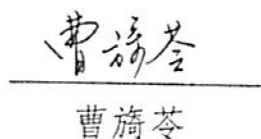 曹旖苓
曹旖苓